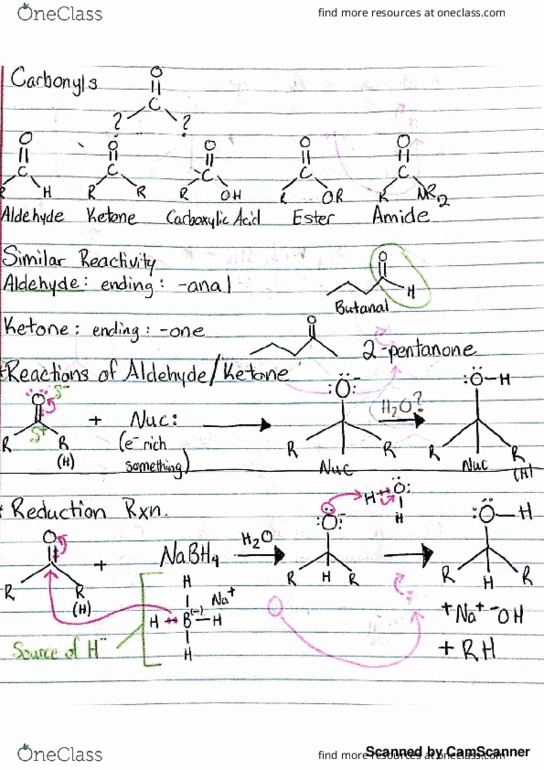 OneClass find more resources at oneclass.com
Carbonyls
O
C
? ?
O O O O O
C C C C C
R H R R R OH R OR R NR2
Aldehyde Ketone Carboxylic Acid Ester Amide
Similar Reactivity
Aldehyde: ending: -anal
O
H
Butanal
Ketone: ending: -one
O
2-pentanone
*Reactions of Aldehyde/Ketone
:O: δ- :Ö:- H2O? :Ö-H
δ+ + Nuc:
R R R R R R
(H) (e- rich Nuc Nuc (H)
something)
* Reduction Rxn.
H Ö:
H
O :Ö:- :Ö-H
+ NaBH4 H2O
R R R H R R H R
(H) H Na+
H B(-) H + Na+ -OH
Source of H- H + RH
OneClass find more resources at oneclass.com
Scanned by CamScanner